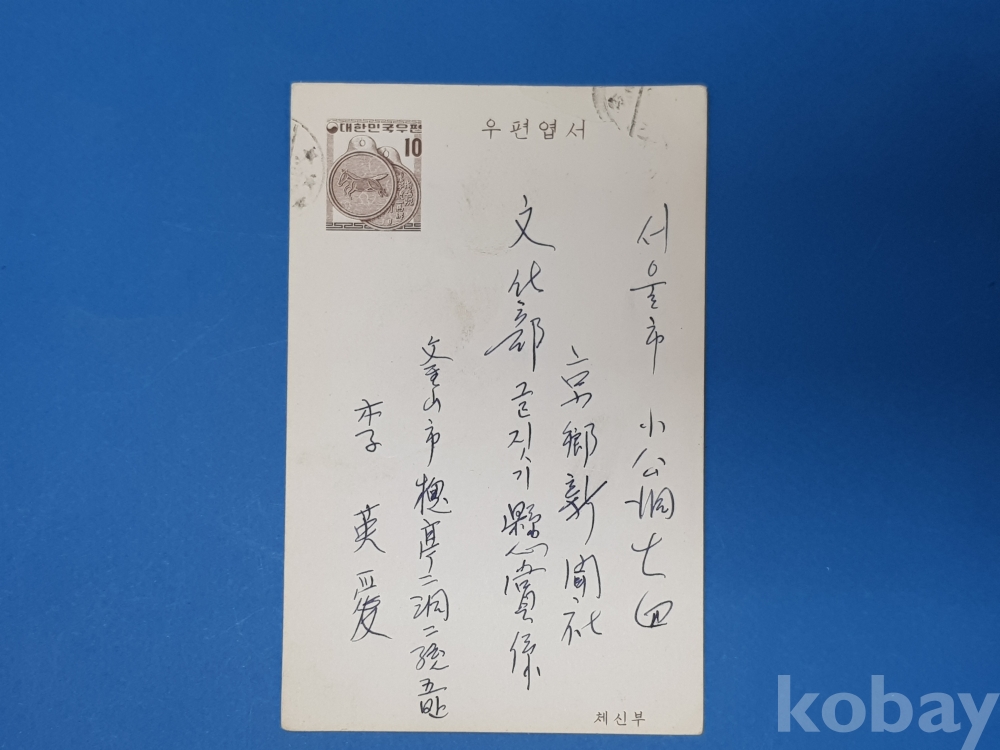 대한민국우편
10
우편엽서
서울市 小公洞 七四
京鄕新聞社
文化部 글짓기 懸賞係
釜山市 槐亭二洞二統五班
李 英愛
체신부
kobay